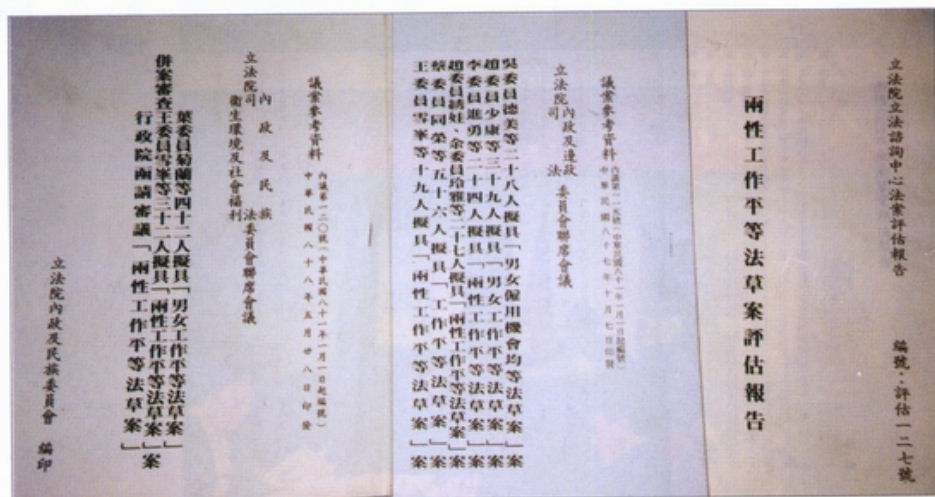 立法院立法諮詢中心法案評估報告　編號：評估一二七號
兩性工作平等法草案評估報告
議案參考資料
中華民國八十七年十月七日印發
立法院內政及邊政、司法委員會聯席會議
吳委員德美等二十八人擬具「男女僱用機會均等法草案」案
趙委員少康等三十九人擬具「男女工作平等法草案」案
李委員進勇等二十四人擬具「兩性工作平等法草案」案
趙委員綉娃、余委員玲雅等二十七人擬具「兩性工作平等法草案」案
蔡委員同榮等五十六人擬具「工作平等法草案」案
王委員雪峯等十九人擬具「兩性工作平等法草案」案
議案參考資料
內議第一二〇號（中華民國八十一年一月一日起編號）
中華民國八十八年五月廿八日印發
立法院
內政及民族
司法委員會聯席會議
衛生環境及社會福利
併案審查
葉委員菊蘭等四十二人擬具「男女工作平等法草案」
王委員雪峯等三十二人擬具「兩性工作平等法草案」案
行政院函請審議「兩性工作平等法草案」
立法院內政及民族委員會　編印